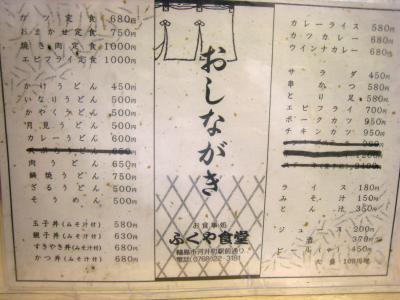 カツ定食 680円
おまかせ定食 750円
焼き肉定食 1000円
エビフライ定食 1000円
かけうどん 450円
いなりうどん 500円
かやくうどん 500円
月見うどん 500円
カレーうどん 600円
肉うどん 650円
鍋焼うどん 750円
ざるうどん 500円
そうめん 500円
玉子丼(みそ汁付) 580円
親子丼(みそ汁付) 630円
すきやき丼(みそ汁付) 680円
かつ丼(みそ汁付) 680円
おしながき
お食事処
ふくや食堂
輪島市河井町駅前通り
電話(0768)22-3181
カレーライス 580円
カツカレー 680円
ウインナカレー 680円
サラダ 450円
串かつ 580円
とり足 580円
エビフライ 700円
ポークカツ 950円
チキンカツ 950円
ライス 180円
みそ汁 150円
とん汁 350円
ジュース 200円
酒 370円
ビール(中) 450円